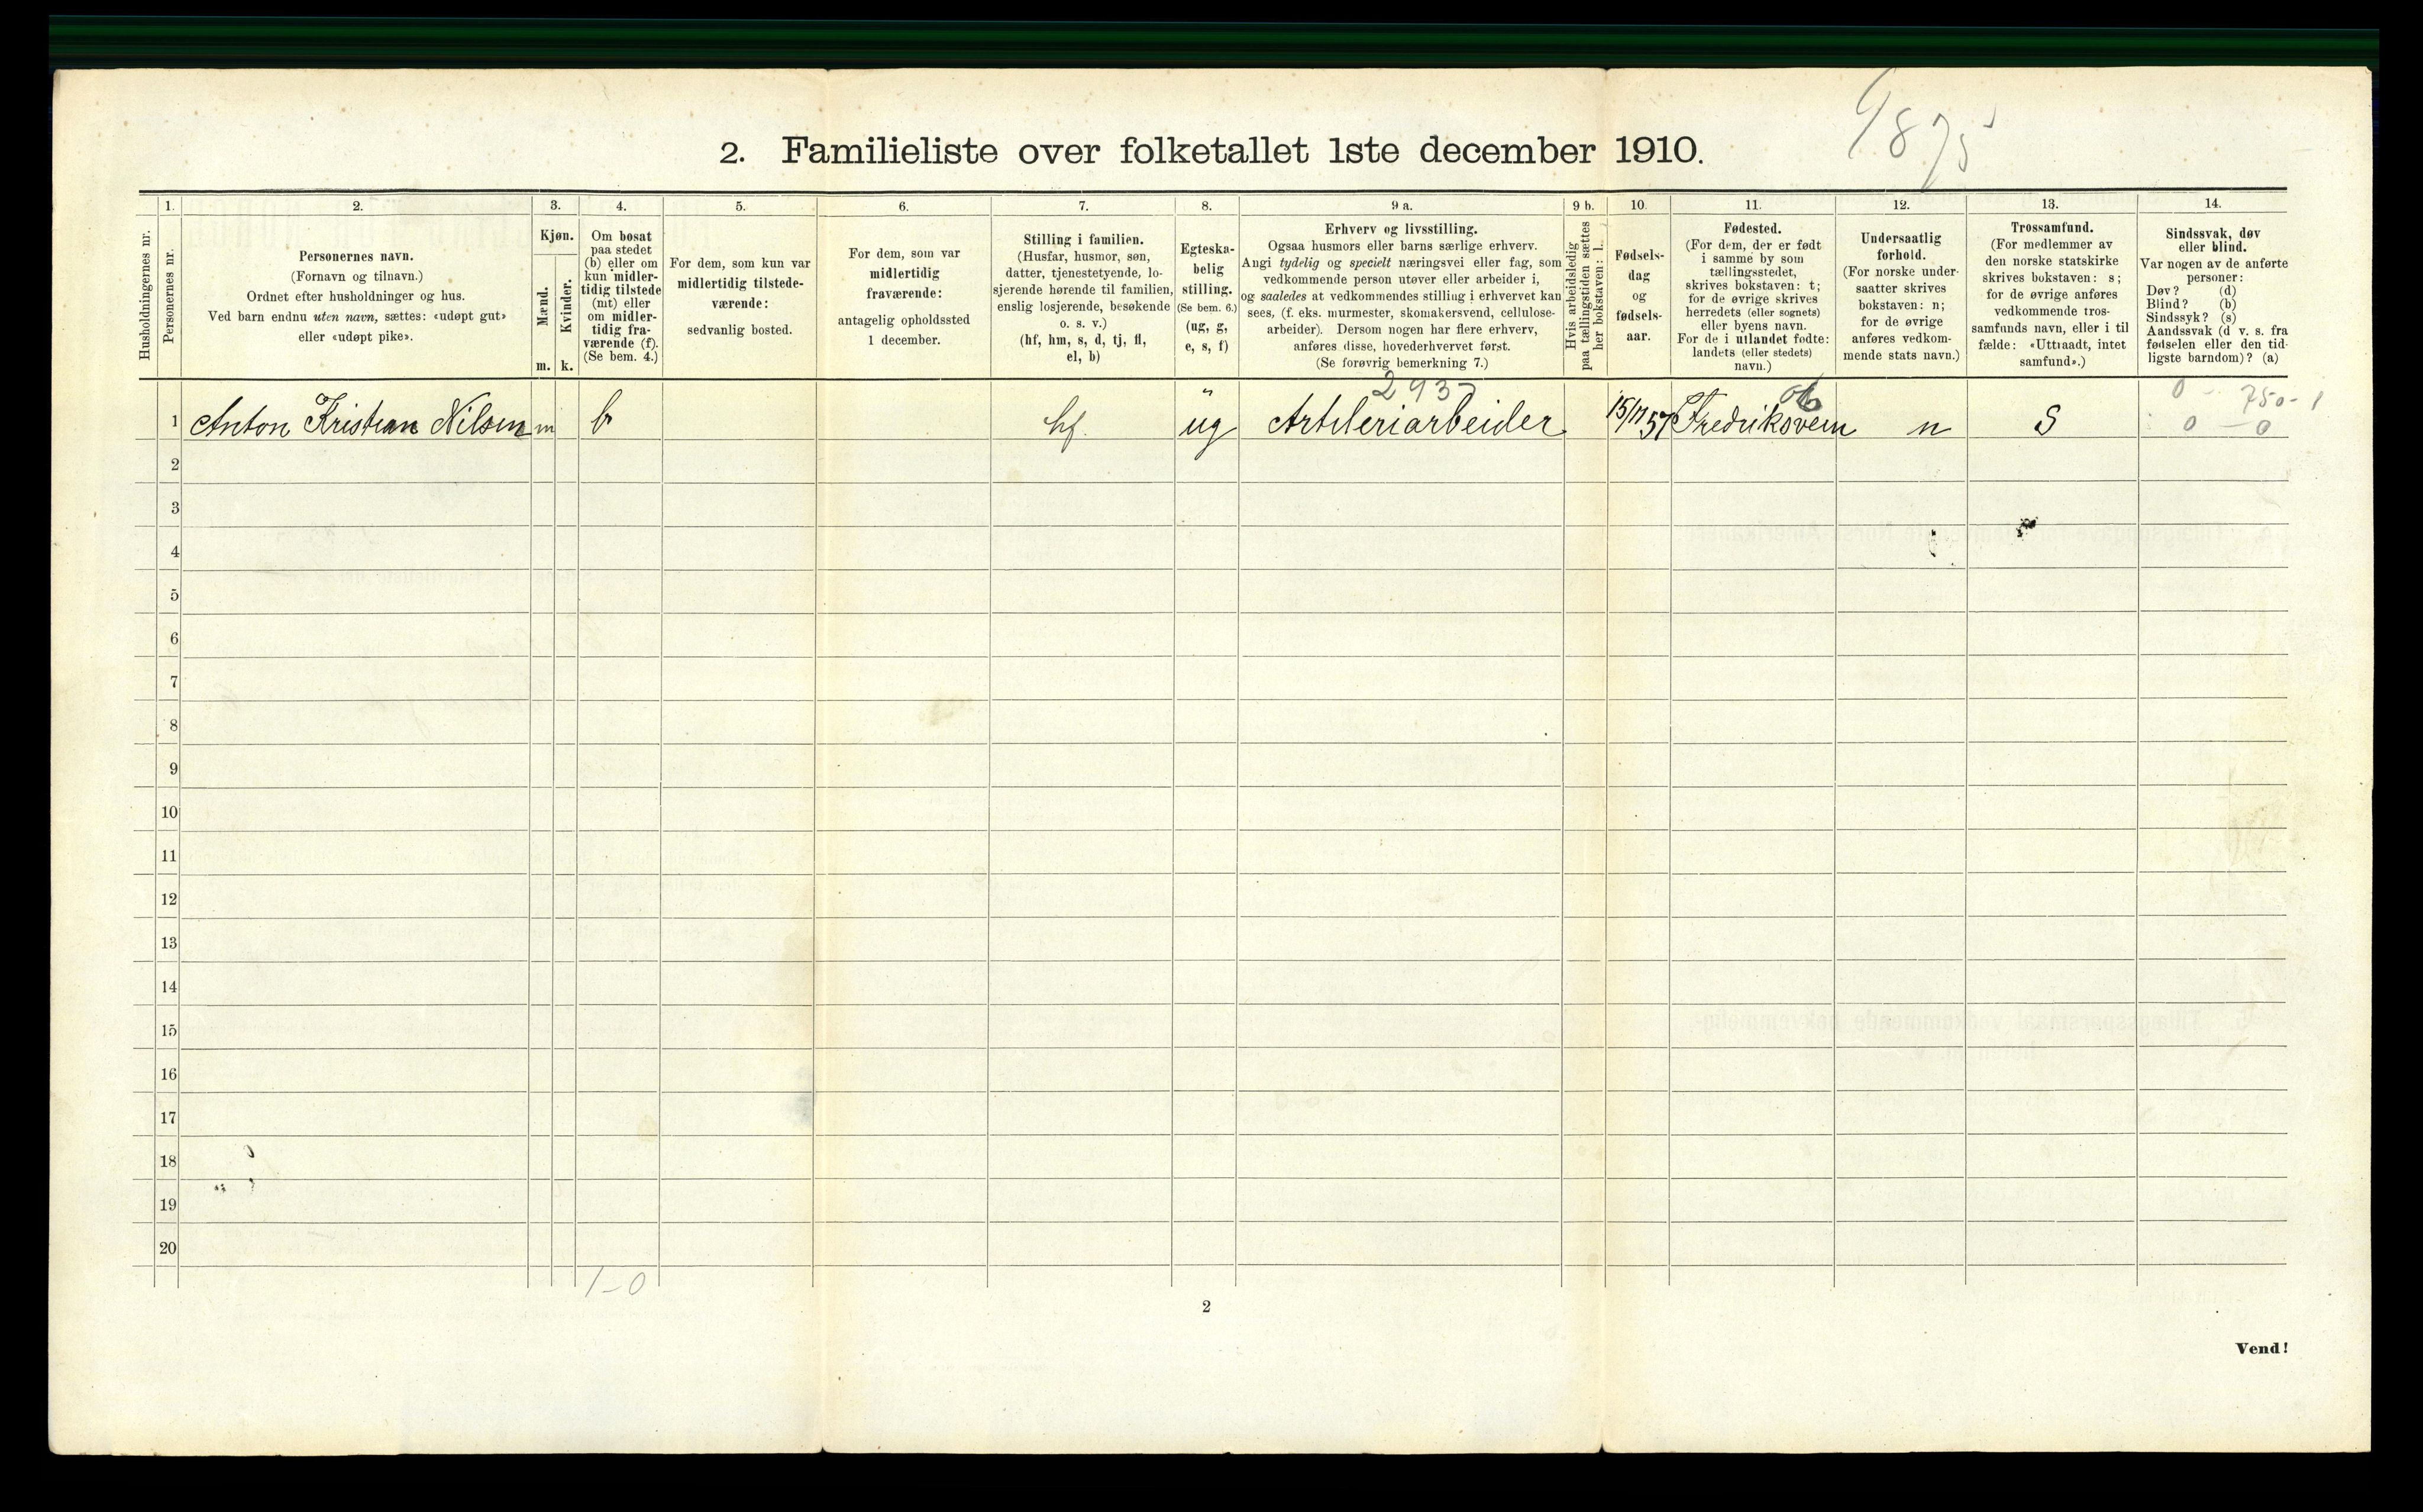 2. Familieliste over folketallet 1ste december 1910.
1. 2. 3. 4. 5. 6. 7. 8. 9 a. 9 b. 10. 11. 12. 13. 14.
Husholdningernes nr.
Personernes nr.
Personernes navn.
(Fornavn og tilnavn.)
Ordnet efter husholdninger og hus.
Ved barn endnu uten navn, sættes: «udøpt gut»
eller «udøpt pike».
Kjøn.
Mænd.
m.
Kvinder.
k.
Om bosat
paa stedet
(b) eller om
kun midler-
tidig tilstede
(mt) eller
om midler-
tidig fra-
værende (f).
(Se bem. 4.)
For dem, som kun var
midlertidig tilstede-
værende:
sedvanlig bosted.
For dem, som var
midlertidig
fraværende:
antagelig opholdssted
1 december.
Stilling i familien.
(Husfar, husmor, søn,
datter, tjenestetyende, lo-
sjerende hørende til familien,
enslig losjerende, besøkende
o. s. v.)
(hf, hm, s, d, tj, fl,
el, b)
Egteska-
belig
stilling.
(Se bem. 6.)
(ug, g,
e, s, f)
Erhverv og livsstilling.
Ogsaa husmors eller barns særlige erhverv.
Angi tydelig og specielt næringsvei eller fag, som
vedkommende person utøver eller arbeider i,
og saaledes at vedkommendes stilling i erhvervet kan
sees, (f. eks. murmester, skomakersvend, cellulose-
arbeider). Dersom nogen har flere erhverv,
anføres disse, hovederhvervet først.
(Se forøvrig bemerkning 7.)
Hvis arbeidsledig
paa tællingstiden sættes
her bokstaven: l.
Fødsels-
dag
og
fødsels-
aar.
Fødested.
(For dem, der er født
i samme by som
tællingsstedet,
skrives bokstaven: t;
for de øvrige skrives
herredets (eller sognets)
eller byens navn.
For de i utlandet fødte:
landets (eller stedets)
navn.)
Undersaatlig
forhold.
(For norske under-
saatter skrives
bokstaven: n;
for de øvrige
anføres vedkom-
mende stats navn.)
Trossamfund.
(For medlemmer av
den norske statskirke
skrives bokstaven: s;
for de øvrige anføres
vedkommende tros-
samfunds navn, eller i til-
fælde: «Uttraadt, intet
samfund».)
Sindssvak, døv
eller blind.
Var nogen av de anførte
personer:
Døv? (d)
Blind? (b)
Sindssyk? (s)
Aandssvak (d. v. s. fra
fødselen eller den tid-
ligste barndom)? (a)
293 0 - 750-1
1 Anton Kristian Nilsen m b hf. ug Artileriarbeider 15/11 57 Fredriksvern n S 0 - 0
2
3
4
5
6
7
8
9
10
11
12
13
14
15
16
17
18
19
20
1-0
2
Vend!